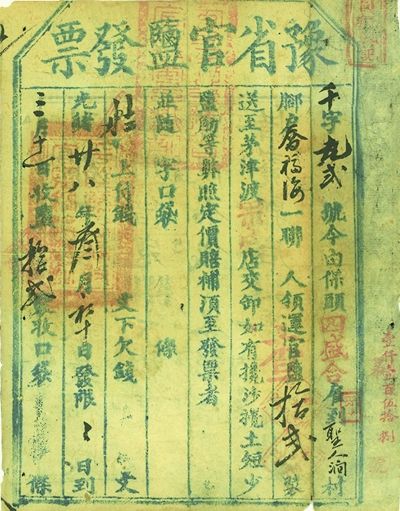 豫省官鹽發票
千字九貳號今由保頭四盛合雇到聖人澗村
腳喬福海一聯 人領運官鹽拾貳袋
送至茅津渡 店交卸如有攙沙攪土短少
鹽觔等弊照定價賠補須至發票者
並隨 字口袋 條
上付錢 文下欠錢 文
光緒廿八年叁月初十日發限 日到
三月十一日收鹽拾貳袋收口袋 條